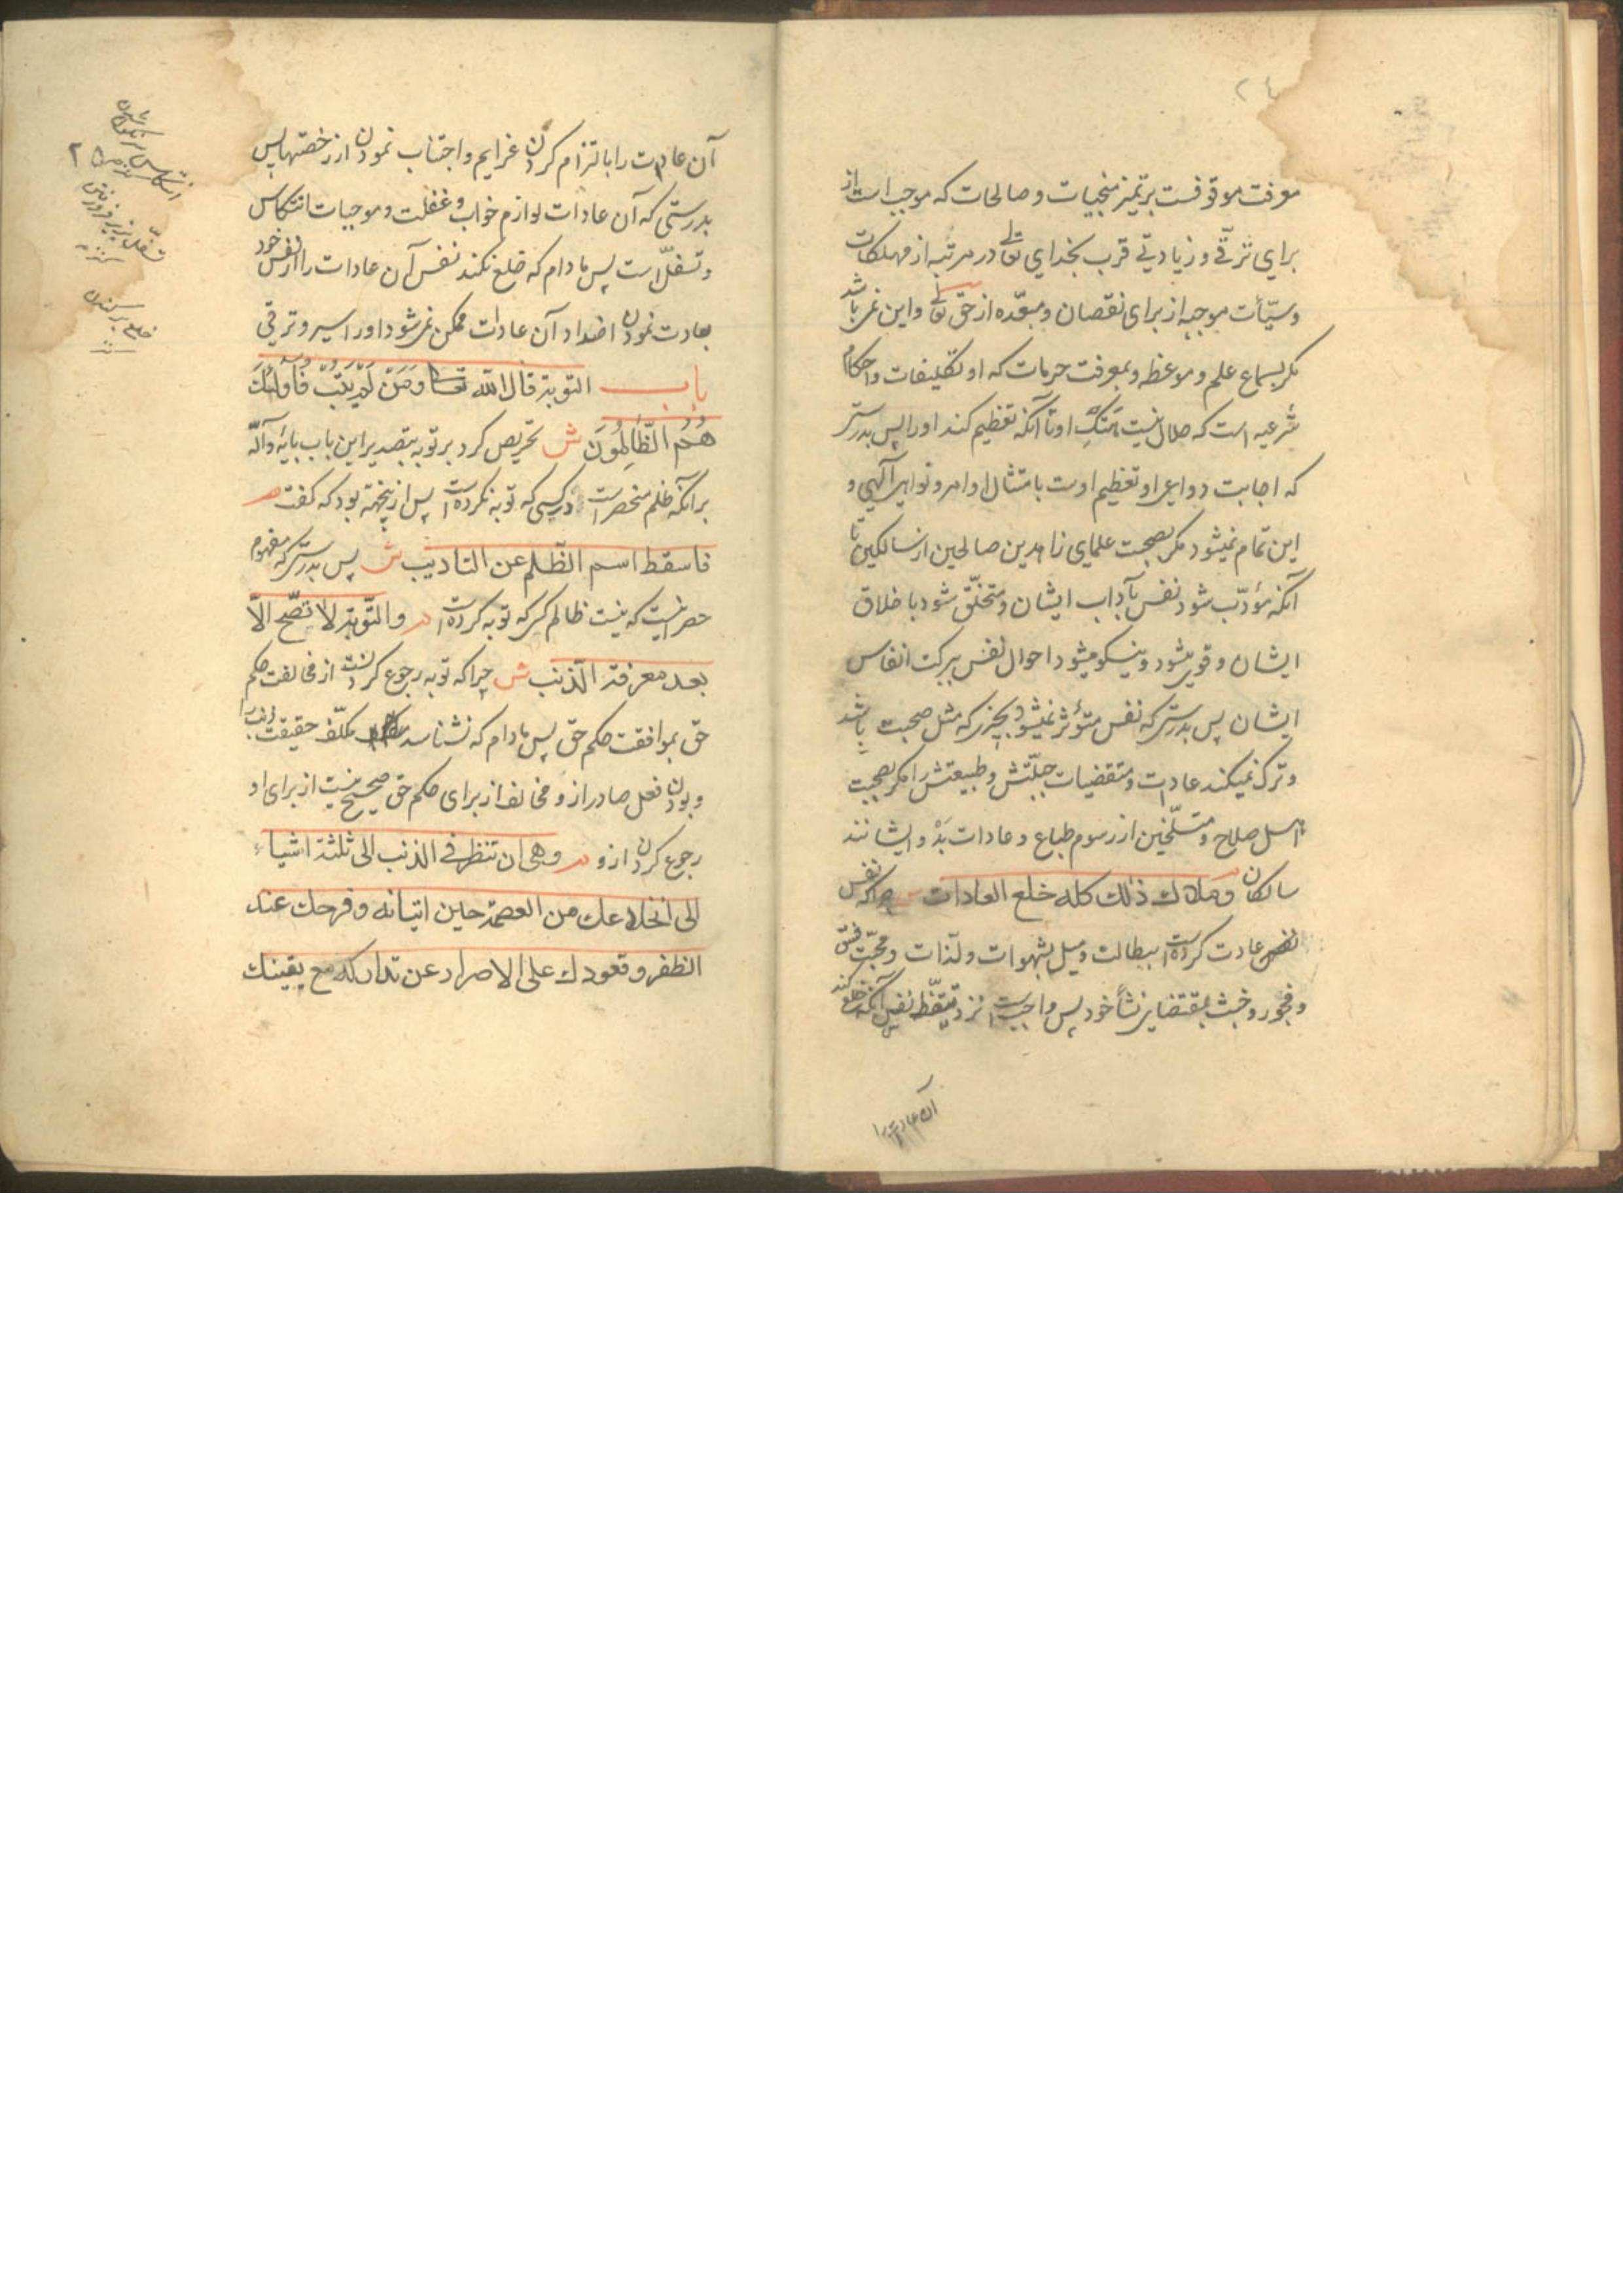 معرفت موقوفست بر تمیز منجیات و صالحات که موجب است از
برای ترقی و زیادتی قرب بخدای تعالی در مرتبه از مهلکات
و سیّئات موجبه از برای نقصان و مبعّده از حق تعالی و این نمی باشد
مکر بسماع علم و موعظه و بمعرفت حرمات که او تکلیفات و احکام
شرعیه است که حلال نیست هتک او تا آنکه تعظیم کند او را پس بدرستی
که اجابت دواعی او تعظیم اوست بامتثال اوامر و نواهی آلهی و
این تمام نمیشود مکر بصحبت علمای زاهدین صالحین از سالکین تا
آنکه مؤدّب شود نفس بآداب ایشان و متخلّق شود باخلاق
ایشان و قوی میشود و نیکو میشود احوال نفس ببرکت انفاس
ایشان پس بدرستی که نفس متؤثر نمیشود بچیزی که مثل صحبت باشد
و ترک نمیکند عادات و مقتضیات جبلّتش و طبیعتش را مکر بصحبت
اهل صلاح و منسلخین از رسوم طباع و عادات بَدْ و ایشانند
سالکان م وملاك ذلك كله خلع العادات ش چراکه نفس
عادت کرده است ببطالت و میل بشهوات و لذات و محبّت فسق
و فجور و خبث بمقتضای نشأ خود پس واجب است نزد تیقّظ نفس آنکه خلع کند
آن عادت را
آن عادت را بالتزام کردن غرایم و اجتناب نمودن از رخصتها پس
بدرستی که آن عادات لوازم خواب و غفلت و موجبات انتکاس
و تسفّل است پس مادام که خلع نکند نفس آن عادات را از نفس خود
بعادت نمودن اضداد آن عادات ممکن نمی شود او را سیر و ترقی
باب التوبة قال الله تعالى وَمَنْ لَمْ يَتُبْ فَأُولٰئِكَ
هُمُ الظَّالِمُونَ ش تحریص کرد بر توبه بتصدیر این باب بآیهٔ دالّه
بر آنکه ظلم منحصر است در کسی که توبه نکرده است پس ازینجهته بود که کفت م
فاسقط اسم الظّلم عن التاديب ش پس بدرستی که مفهوم
حصر اینست که نیست ظالم کسی که توبه کرده است م والتّوبة لا تصّح الاّ
بعد معرفة الذنب ش چرا که توبه رجوع کردنست از مخالفت حکم
حق بموافقت حکم حق پس مادام که نشناسد مکلّف حقیقت ذنب را
و بودن فعل صادر ازو مخالف از برای حکم حق صحیح نیست از برای او
رجوع کردن ازو م وهى ان تنظر في الذنب الى ثلثة اشياء
الى انخلاعك من العصمة حين اتيانه وفرحك عند
الظفر وقعودك على الاصرار عن تداركه مع يقينك
انتکاس
تسفّل بزیر فرو رفتن
خلع برکندن